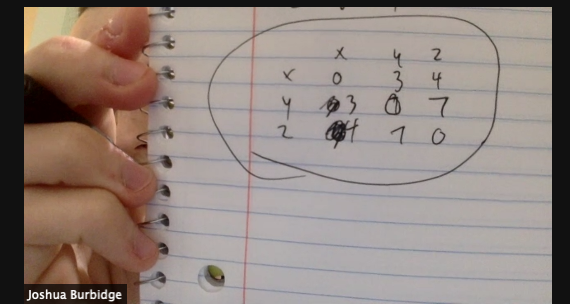 x y 2
x 0 3 4
y 3 0 7
2 4 7 0
Joshua Burbidge